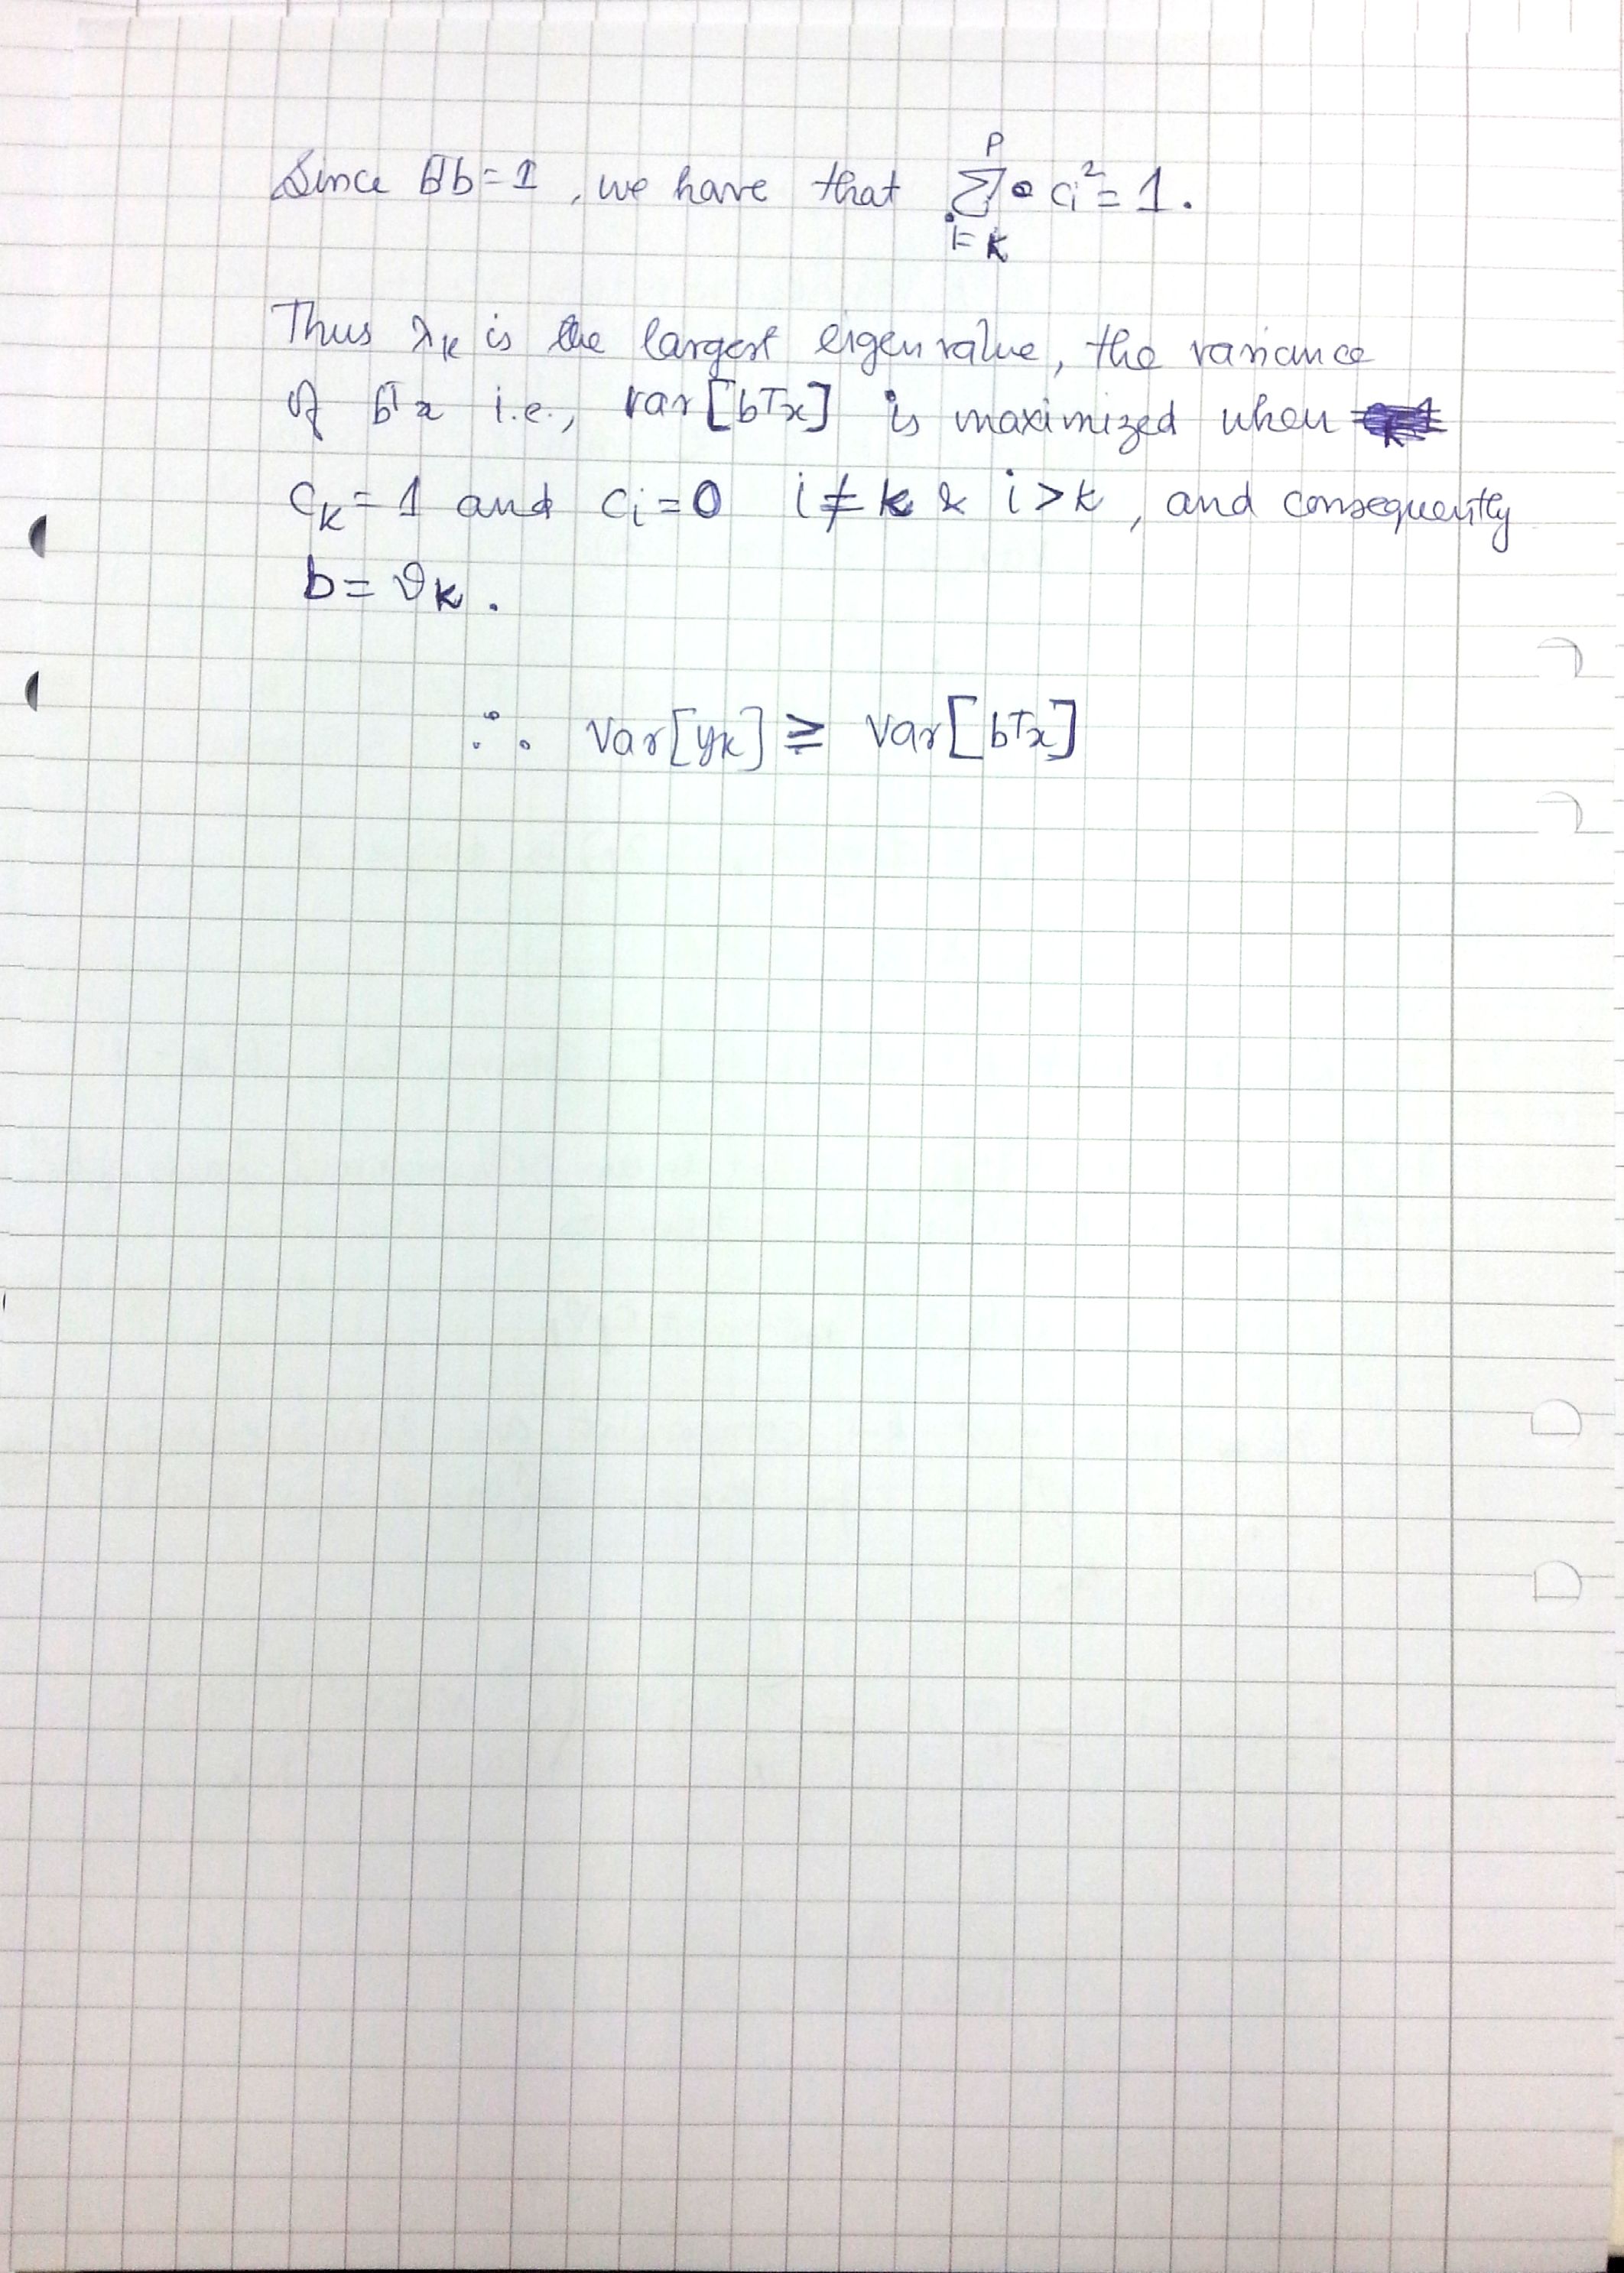 Since bᵀb=1, we have that ∑_{i=k}^{p} cᵢ²=1.
Thus λₖ is the largest eigenvalue, the variance
of bᵀx i.e., var[bᵀx] is maximized when
cₖ=1 and cᵢ=0 i≠k & i>k, and consequently
b=ϑₖ.
∴ Var[yₖ] ≥ Var[bᵀx]